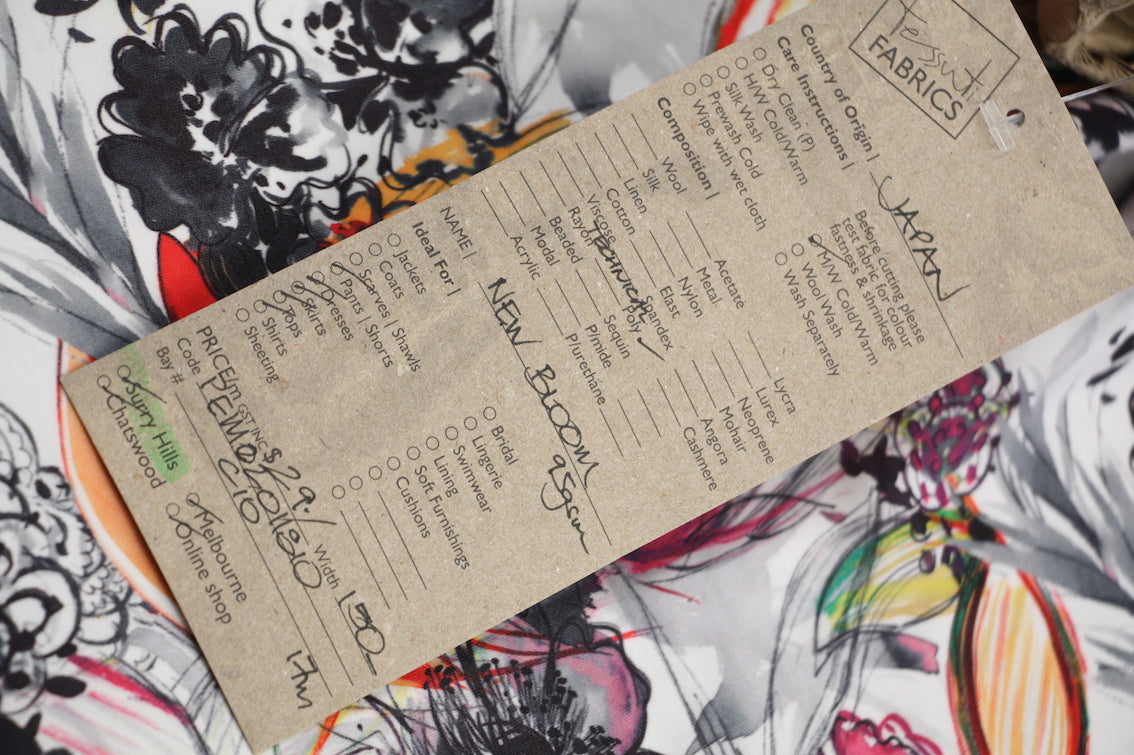 Tessuti
FABRICS
Country of Origin | JAPAN
Care Instructions |
Dry Clean (P)
H/W Cold/Warm
Silk Wash
Prewash Cold
Wipe with wet cloth
Before cutting please
test fabric for colour
fastness & shrinkage
M/W Cold/Warm
Wool Wash
Wash Separately
Composition |
Wool
Silk
Linen
Cotton
Viscose
Rayon
Beaded
Modal
Acrylic
TECHNICAL
Acetate
Metal
Nylon
Elast
Spandex
Poly ✓
Sequin
P/mide
P/urethane
Lycra
Lurex
Neoprene
Mohair
Angora
Cashmere
NAME | NEW BLOOM 95gsm
Ideal For |
Jackets
Coats
Scarves | Shawls
Pants | Shorts
Dresses
Skirts
Tops
Shirts
Sheeting
Bridal
Lingerie
Swimwear
Lining
Soft Furnishings
Cushions
PRICE/m GST INC $29.- Width 150
Code
Bay # C10 17m
Surry Hills
Chatswood
Melbourne
Online shop